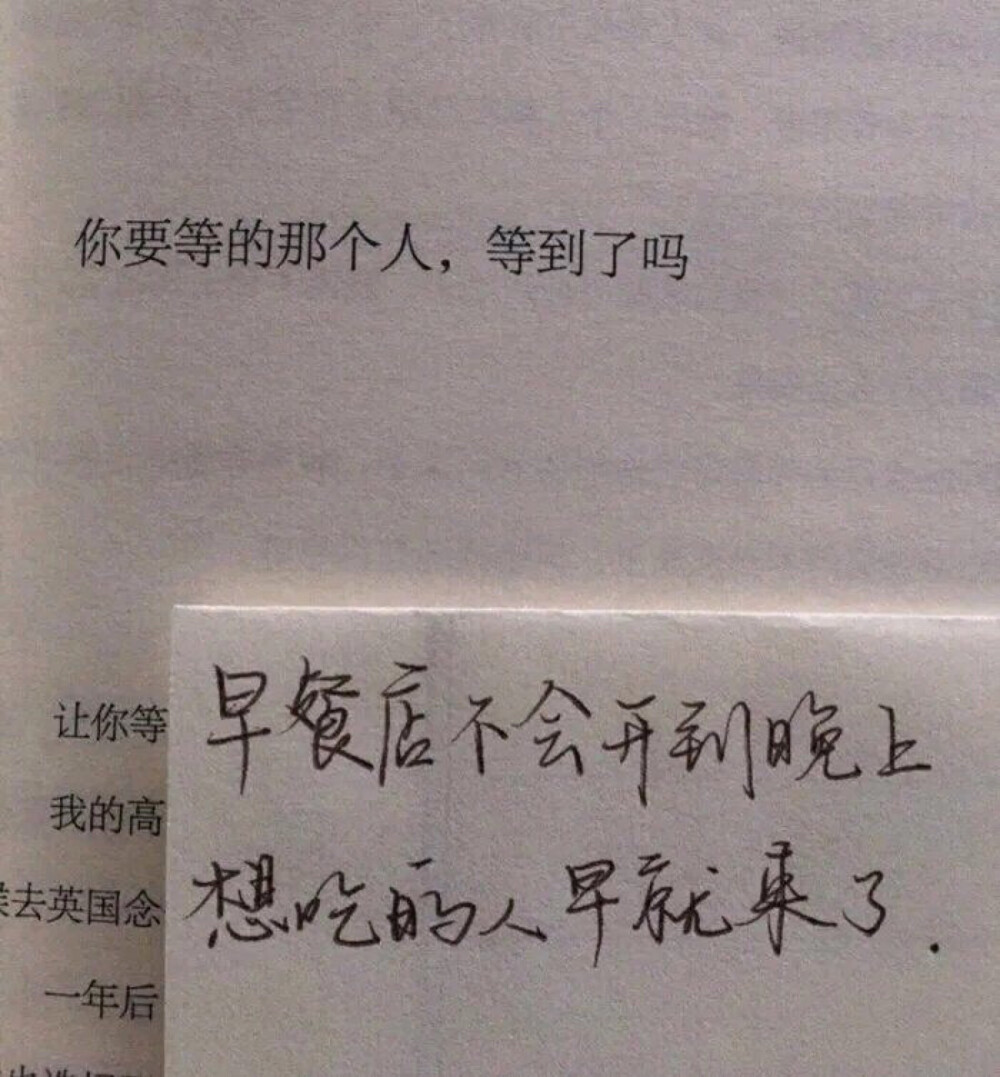 你要等的那个人，等到了吗
早餐店不会开到晚上
想吃的人早就来了.
让你等
我的高
去英国念
一年后